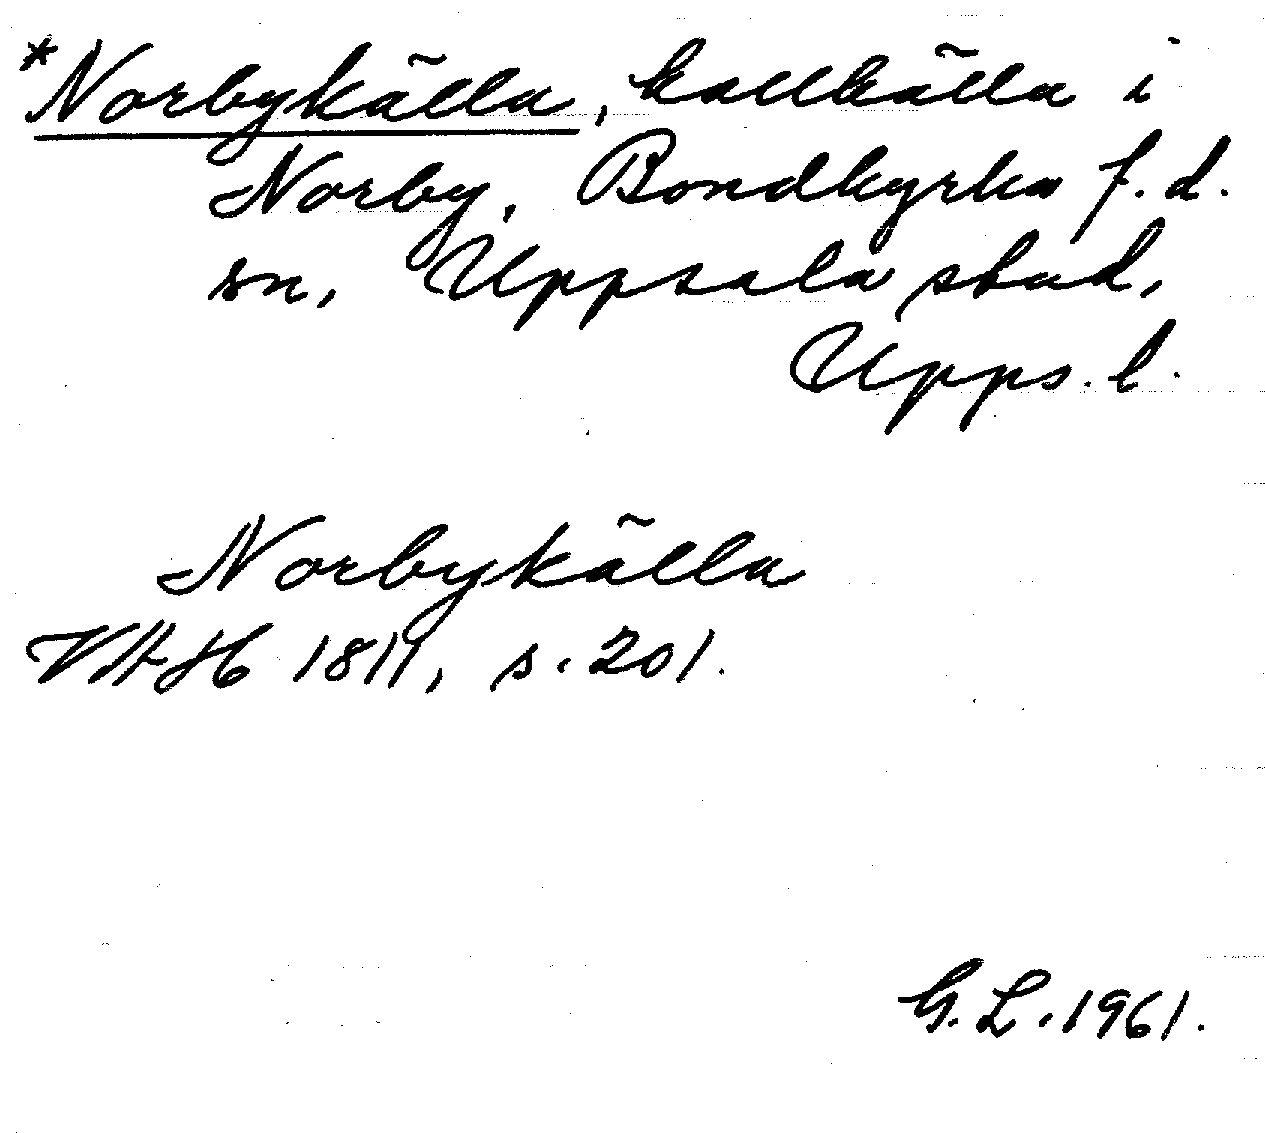 *Norbykälla, kallkälla i
Norby, Bondkyrka f.d.
sn, Uppsala stad,
Upps. l.
Norbykälla
VAH 1811, s. 201.
G.L. 1961.